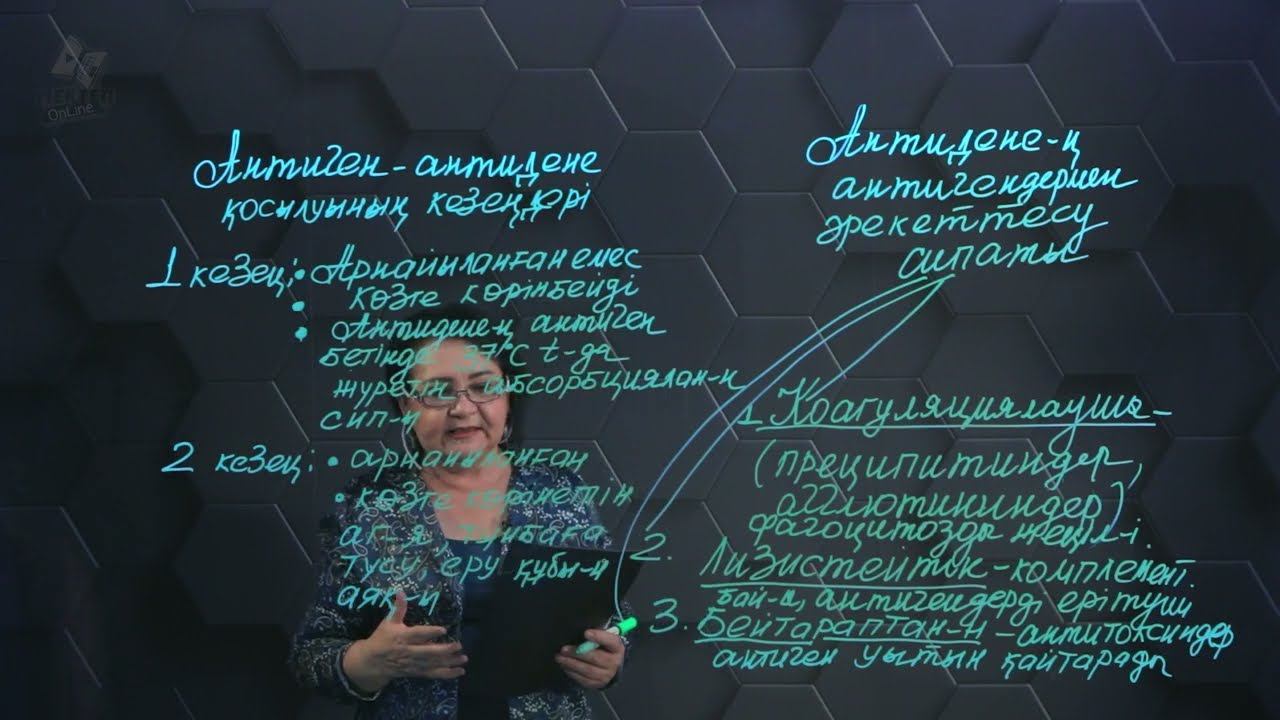 OnLine
Антиген-антидене
қосылуының кезеңдері
1 кезең: • Арнайыланған емес
• көзге көрінбейді
• Антидене-ң антиген
бетінде 37°C t-да
жүретін абсорбциялан-ң
сип-ы
2 кезең: • арнайыланған
• көзге көрінетін
аг-я, тұнбаға
түсу, еру құбы-ң
аяқ-ы
Антидене-ң
антигендермен
әрекеттесу
сипаты
1 Коагуляциялаушы-
(преципитиндер,
агглютининдер)
фагоцитозды жеңіл-і.
2. Лизистейтін - комплемент.
бай-ы, антигендерді ерітуші
3. Бейтараптан-н - антитоксиндер
антиген уытын қайтарады